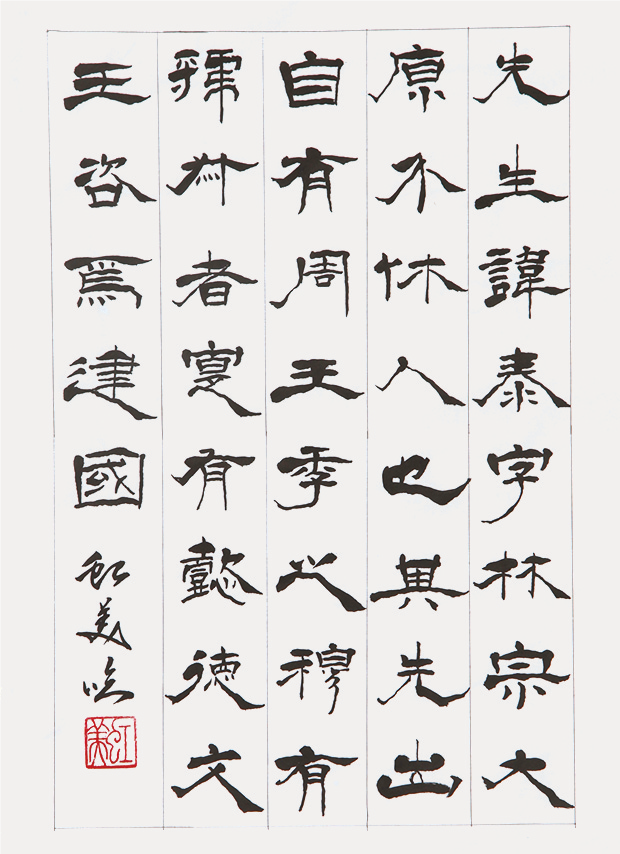 先生諱泰字林宗大
原介休人也其先出
自有周王季之穆有
虢叔者寔有懿德文
王咨焉建國
虹美临
虹美